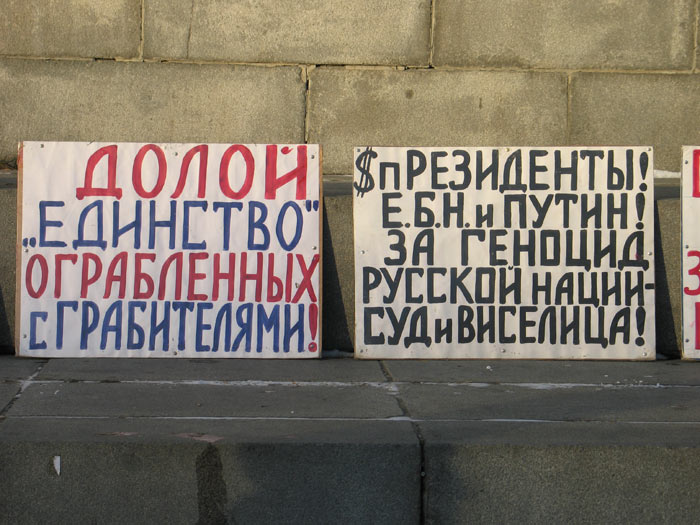 ДОЛОЙ
„ЕДИНСТВО"
ОГРАБЛЕННЫХ
с ГРАБИТЕЛЯМИ!
$пРЕЗИДЕНТЫ!
Е.Б.Н. и ПУТИН!
ЗА ГЕНОЦИД
РУССКОЙ НАЦИИ-
СУД и ВИСЕЛИЦА!